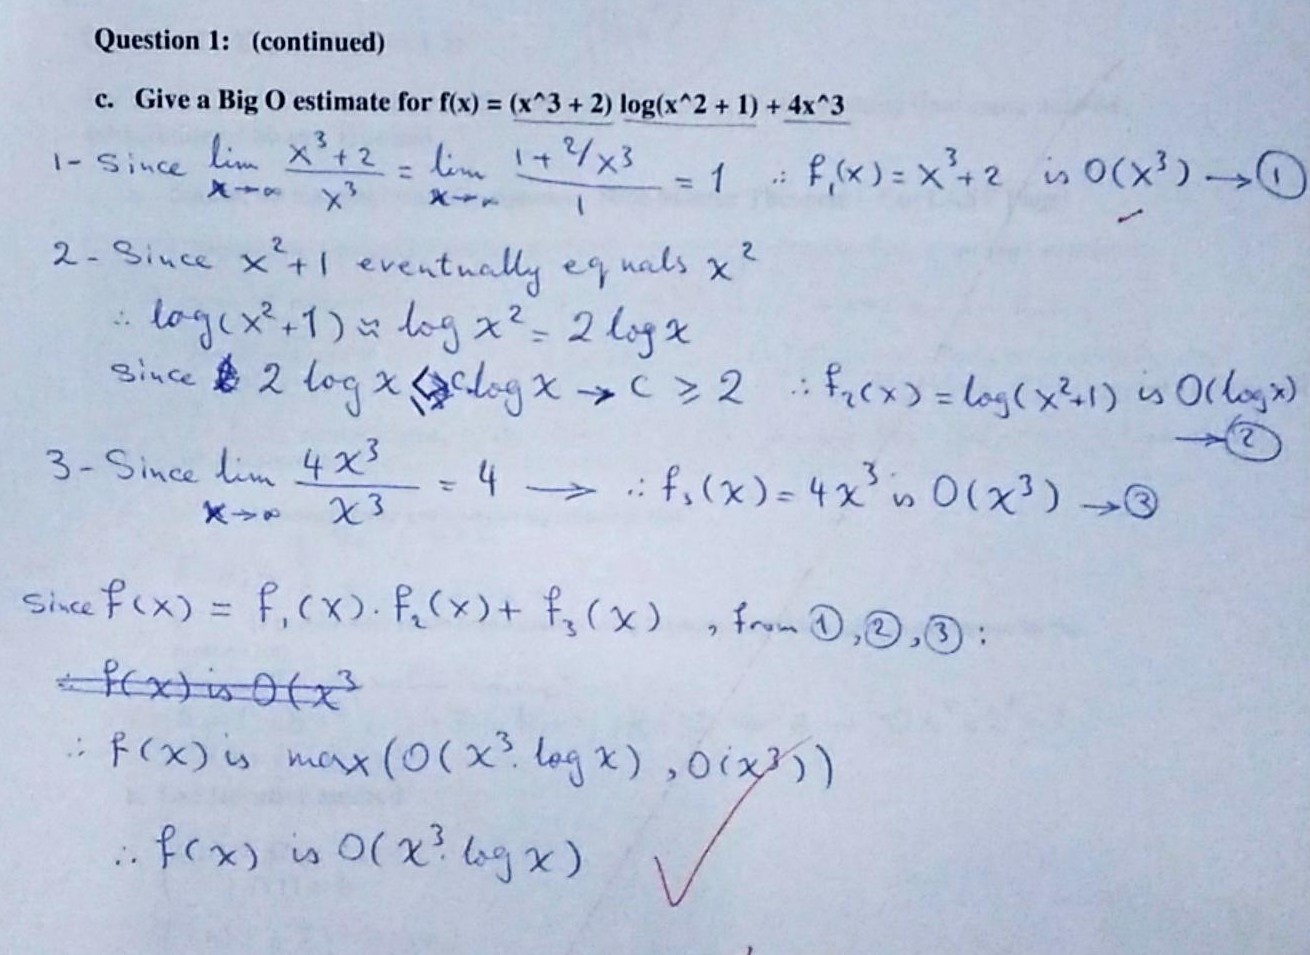 Question 1: (continued)
c. Give a Big O estimate for f(x) = (x^3 + 2) log(x^2 + 1) + 4x^3
1- Since lim x→∞ (x³+2)/x³ = lim x→∞ (1+2/x³)/1 = 1 ∴ f₁(x) = x³+2 is O(x³) → ①
2- Since x²+1 eventually equals x²
∴ log(x²+1) ≈ log x² = 2 log x
since 2 log x ≤ c log x → c ≥ 2 ∴ f₂(x) = log(x²+1) is O(log x)
→ ②
3- Since lim x→∞ 4x³/x³ = 4 → ∴ f₃(x) = 4x³ is O(x³) → ③
Since f(x) = f₁(x). f₂(x) + f₃(x) , from ①,②,③:
∴ f(x) is O(x³
∴ f(x) is max (O(x³. log x) , O(x³))
∴ f(x) is O(x³. log x)